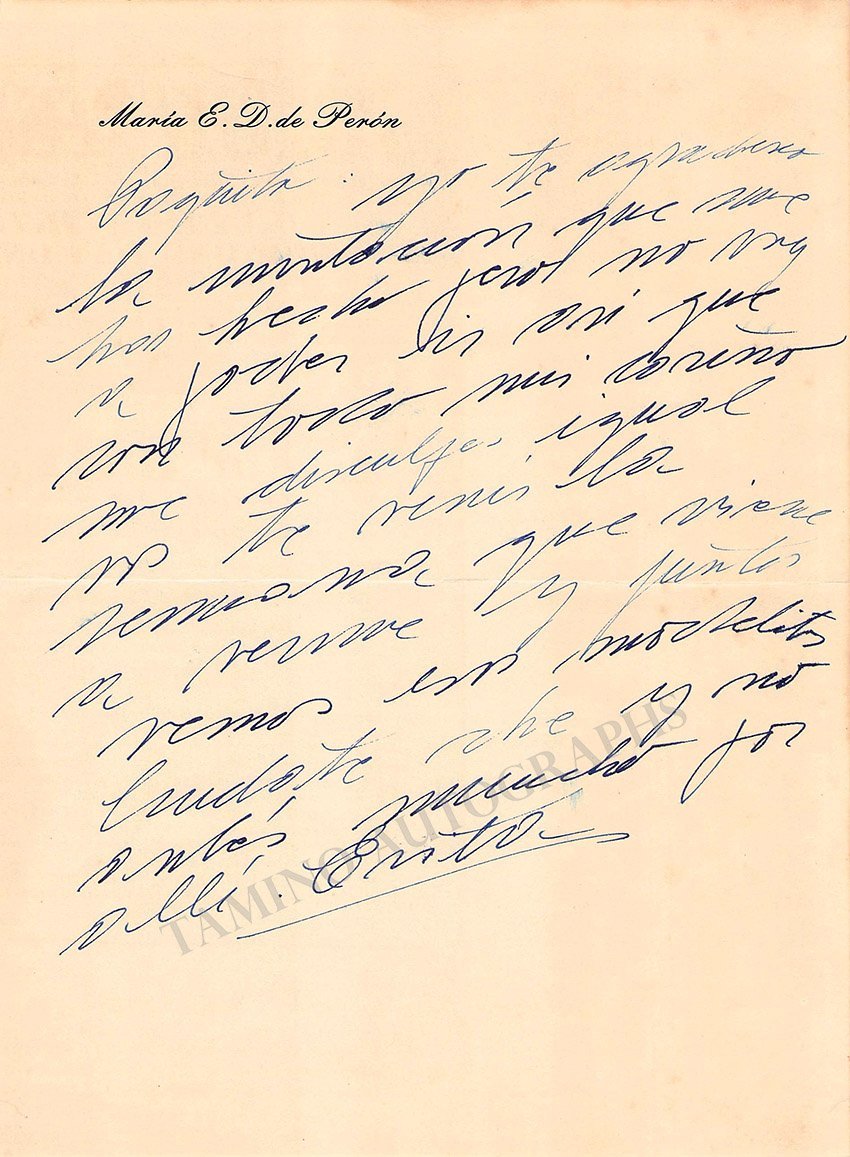 María E. D. de Perón
Paquito: yo te agradezco
la invitación que me
has hecho pero no voy
a poder ir así que
con todo mi cariño
me disculpas igual
vos te venís la
semana que viene
a verme y juntos
vemos esos modelitos
Cuidate che y no
andés mucho por
allí. Evita
TAMINO AUTOGRAPHS